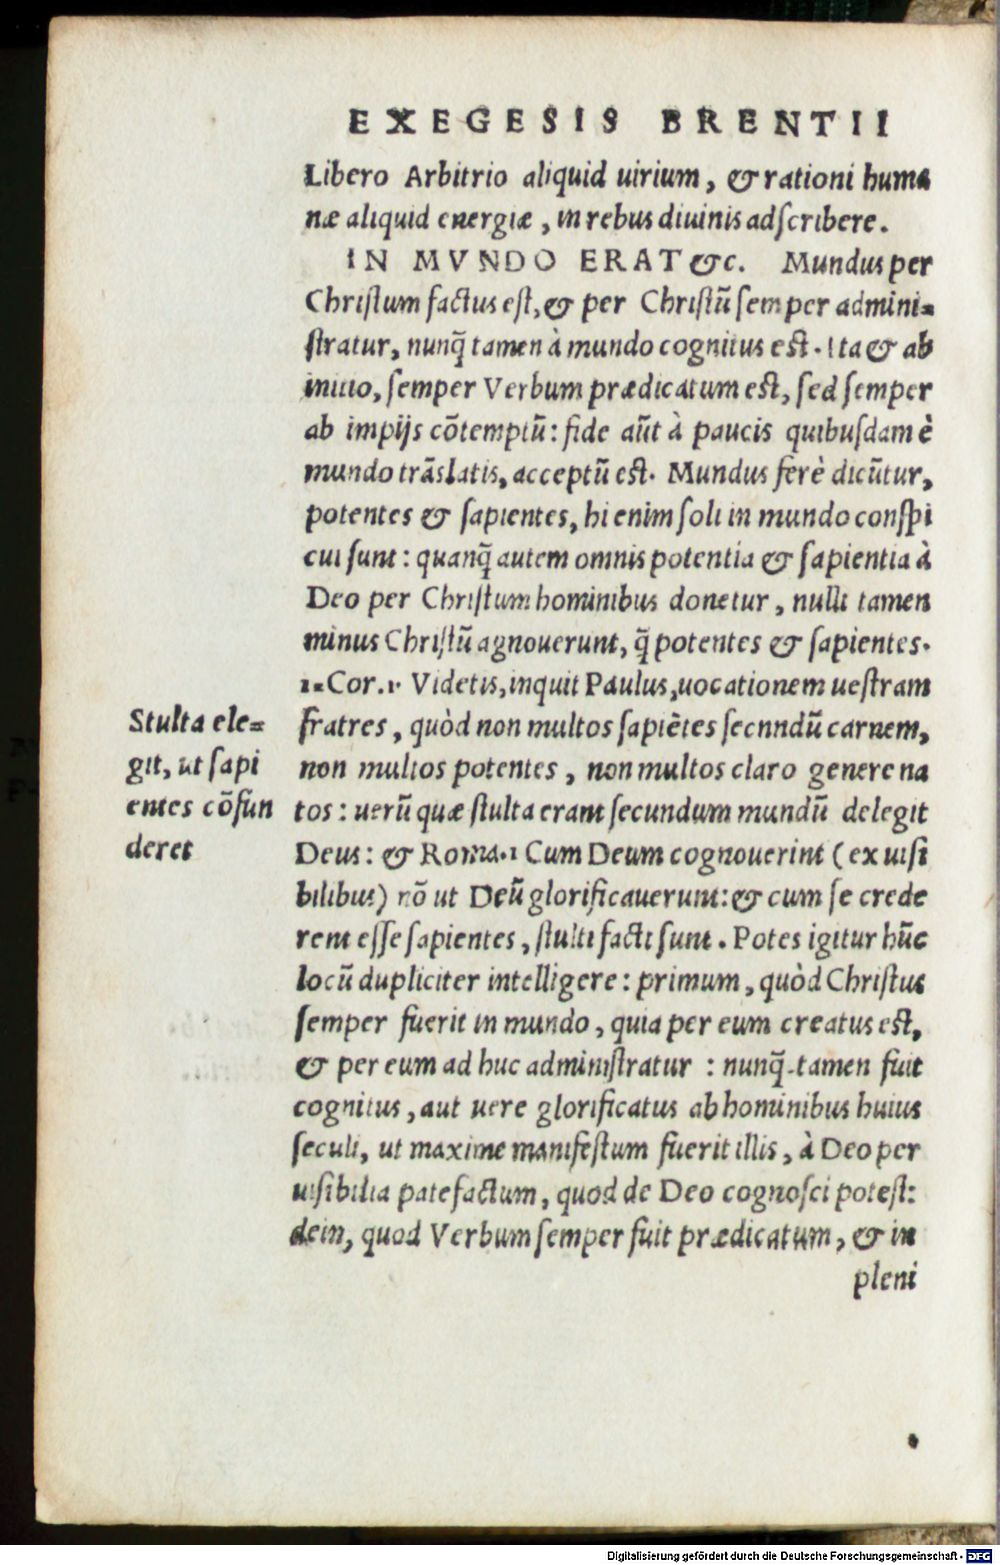 EXEGESIS BRENTII
Libero Arbitrio aliquid uirium, & rationi huma
næ aliquid energiæ, in rebus diuinis adſcribere.
IN MVNDO ERAT &c. Mundus per
Chriſtum factus eſt, & per Chriſtū ſemper admini=
ſtratur, nunq̃ tamen à mundo cognitus eſt. Ita & ab
initio, ſemper Verbum prædicatum eſt, ſed ſemper
ab impijs cōtemptū: fide aūt à paucis quibuſdam è
mundo trāslatis, acceptū eſt. Mundus ferè dicūtur,
potentes & ſapientes, hi enim ſoli in mundo conſpi
cui ſunt: quanq̃ autem omnis potentia & ſapientia à
Deo per Chriſtum hominibus donetur, nulli tamen
minus Chriſtū agnouerunt, q̃ potentes & ſapientes.
1.Cor.1. Videtis, inquit Paulus, uocationem ueſtram
fratres, quòd non multos ſapiētes ſecnndū carnem,
non multos potentes, non multos claro genere na
tos: uerū quæ ſtulta erant ſecundum mundū delegit
Deus: & Roma.1 Cum Deum cognouerint (ex uiſi
bilibus) nō ut Deū glorificauerunt: & cum ſe crede
rent eſſe ſapientes, ſtulti facti ſunt. Potes igitur hūc
locū dupliciter intelligere: primum, quòd Chriſtus
ſemper fuerit in mundo, quia per eum creatus eſt,
& per eum ad huc adminiſtratur : nunq̃ tamen fuit
cognitus, aut uere glorificatus ab hominibus huius
ſeculi, ut maxime manifeſtum fuerit illis, à Deo per
uiſibilia patefactum, quod de Deo cognoſci poteſt:
dein, quod Verbum ſemper fuit prædicatum, & in
pleni
Stulta ele=
git, ut ſapi
entes cōfun
deret
Digitalisierung gefördert durch die Deutsche Forschungsgemeinschaft - DFG